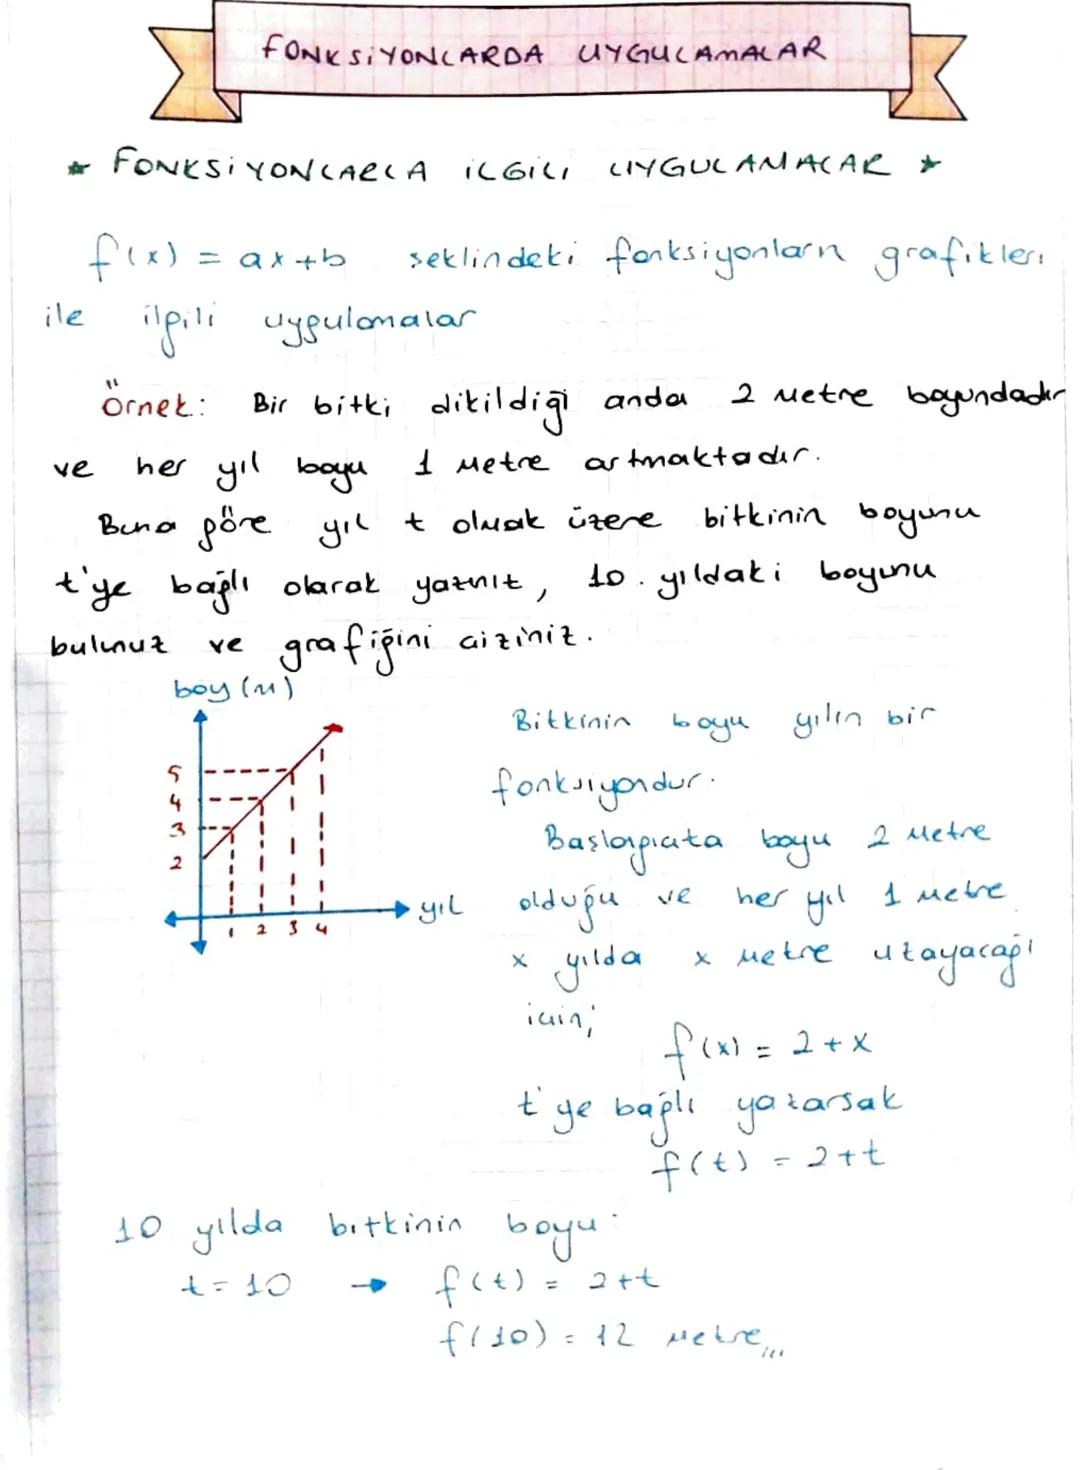 FONKSiYONLARDA UYGULAMALAR
★ FONKSiYONLARLA iLGiLi UYGULAMALAR ★
f(x) = ax+b seklindeki fonksiyonların grafikleri
ile ilgili uygulamalar
Örnek: Bir bitki dikildiği anda 2 metre boyundadır
ve her yıl boyu 1 metre artmaktadır.
Buna göre yıl t olmak üzere bitkinin boyunu
t'ye bağlı olarak yazınız, 10. yıldaki boyunu
bulunuz ve grafiğini çiziniz.
boy (m)
5
4
3
2
1 2 3 4
yıl
Bitkinin boyu yılın bir
fonksiyondur.
Başlangıçta boyu 2 metre
olduğu ve her yıl 1 metre
x yılda x metre uzayacağı
için;
f(x) = 2+x
t'ye bağlı yazarsak
f(t) = 2+t
10 yılda bitkinin boyu:
t=10 → f(t) = 2+t
f(10) = 12 metre,,,